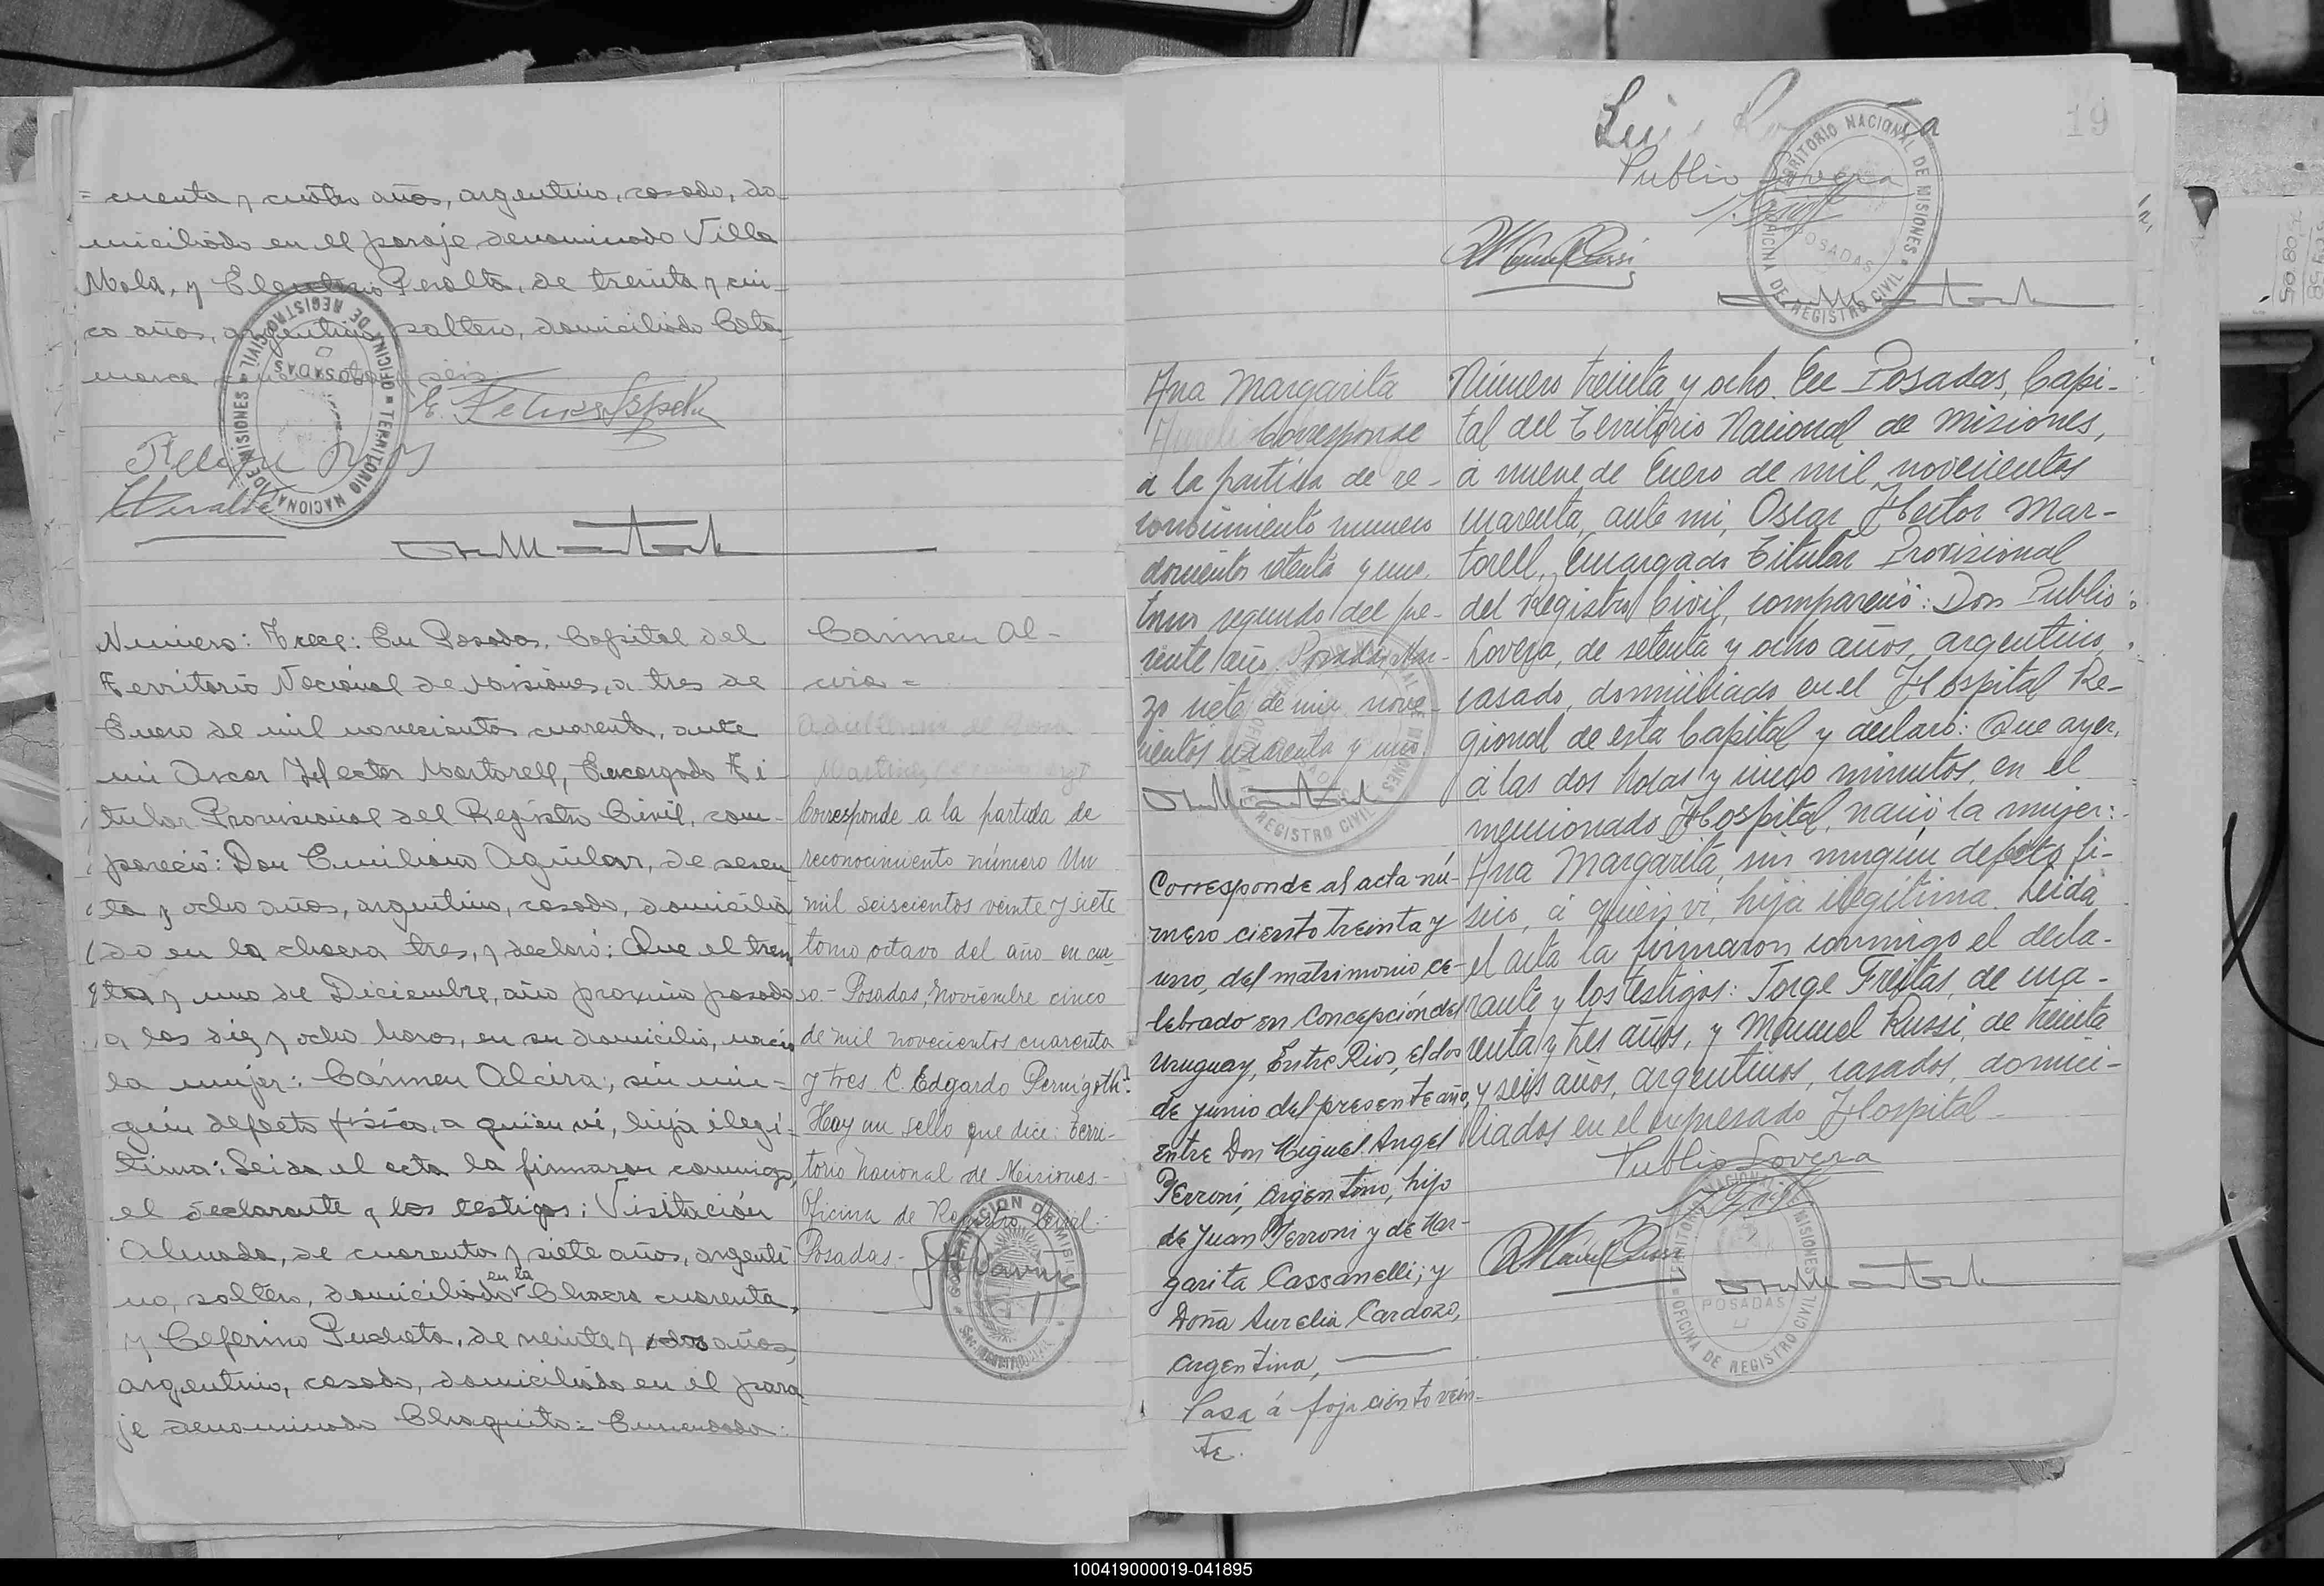 = cuenta y cuatro años, argentino, casado, do-
miciliado en el paraje denominado Villa
Mola, y Eleuterio Peralta, de treinta y cin-
co años, argentino, soltero, domiciliado Cata-
marca
Numero: Trece: En Posadas, Capital del
Territorio Nacional de Misiones, a tres de
Enero de mil novecientos cuarenta, ante
mi Oscar Hector Martorell, Encargado Ti-
tular Provisional del Registro Civil, com-
pareció: Don Emiliano Aguilar, de sesen-
ta y ocho años, argentino, casado, domicilia
do en la chacra tres, y declaró: Que el trein
ta y uno de Diciembre, año proximo pasado
a las diez y ocho horas, en su domicilio, nació
la mujer: Cármen Alcira, sin nin-
gún defecto físico, a quien ví, hija ilegí-
tima: Leida el acta la firmaron conmigo,
el declarante y los testigos: Visitación
Almada, de cuarenta y siete años, argenti-
no, soltero, domiciliado en la Chacra cuarenta,
y Ceferino Pucheta, de veinte y ocho años,
argentino, casado, domiciliado en el para
je denominado Chaquito = Enmendado:
Cármen Al-
cira =
Corresponde a la partida de
reconocimiento número Un
mil seiscientos veinte y siete
tomo octavo del año en cur
so.- Posadas, Noviembre cinco
de mil novecientos cuarenta
y tres. C. Edgardo Pernigotti.
Hay un sello que dice: Terri-
torio Nacional de Misiones-
Oficina de Registro Civil.-
Posadas.-
19
Publio Lovera
TERRITORIO NACIONAL DE MISIONES
OFICINA DE REGISTRO CIVIL
POSADAS
Ana Margarita
Corresponde
a la partida de re-
conocimiento numero
doscientos setenta y uno,
tomo segundo del pre-
sente año. Posadas, Mar-
zo siete de mil nove-
cientos cuarenta y uno.
Corresponde al acta nú-
mero ciento treinta y
uno, del matrimonio ce-
lebrado en Concepción del
Uruguay, Entre Rios, el dos
de junio del presente año,
entre Don Miguel Angel
Perroni, argentino, hijo
de Juan Perroni y de Mar-
garita Cassanelli; y
Doña Aurelia Cardozo,
argentina,
Pasa á foja ciento vein-
te.
Número treinta y ocho. En Posadas, Capi-
tal del Territorio Nacional de Misiones,
a nueve de Enero de mil novecientos
cuarenta, ante mi, Oscar Hector Mar-
torell, Encargado Titular Provisional
del Registro Civil, compareció: Don Publio
Lovera, de setenta y ocho años, argentino,
casado, domiciliado en el Hospital Re-
gional de esta Capital y declaró: Que ayer,
a las dos horas y cinco minutos, en el
mencionado Hospital, nació la mujer:
Ana Margarita, sin ningún defecto fí-
sico, a quien ví, hija ilegítima. Leida
el acta la firmaron conmigo el decla-
rante y los testigos: Jorge Freitas, de cua-
renta y tres años, y Manuel Russi, de treinta
y seis años, argentinos, casados, domici-
liados en el expresado Hospital-
Publio Lovera
TERRITORIO NACIONAL DE MISIONES
OFICINA DE REGISTRO CIVIL
POSADAS
100419000019-041895